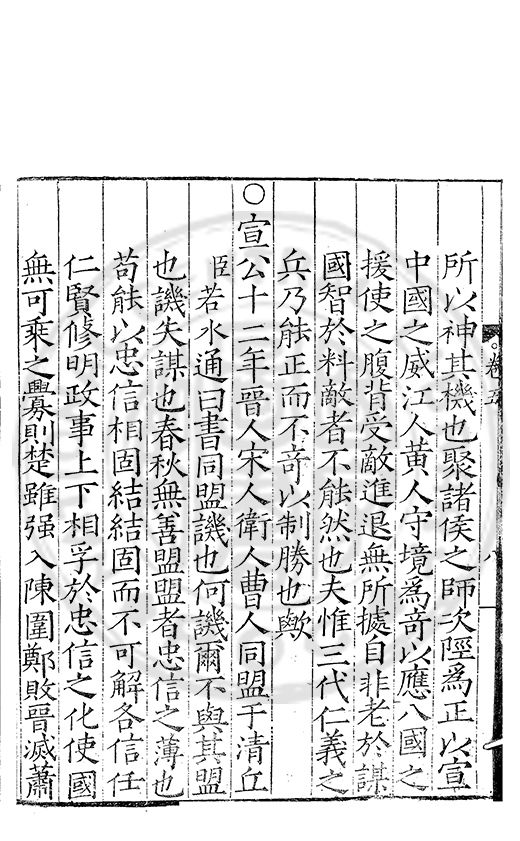 所以神其機也聚諸侯之師次陘為正以宣
中國之威江人黃人守境為奇以應八國之
援使之腹背受敵進退無所據自非老於謀
國智於料敵者不能然也夫惟三代仁義之
兵乃能正而不奇以制勝也歟
○宣公十二年晉人宋人衛人曹人同盟于清丘
臣若水通曰書同盟譏也何譏爾不與其盟
也譏失謀也春秋無善盟盟者忠信之薄也
苟能以忠信相固結結固而不可解各信任
仁賢修明政事上下相孚於忠信之化使國
無可乘之釁則楚雖强入陳圍鄭敗晉滅蕭
卷五
八